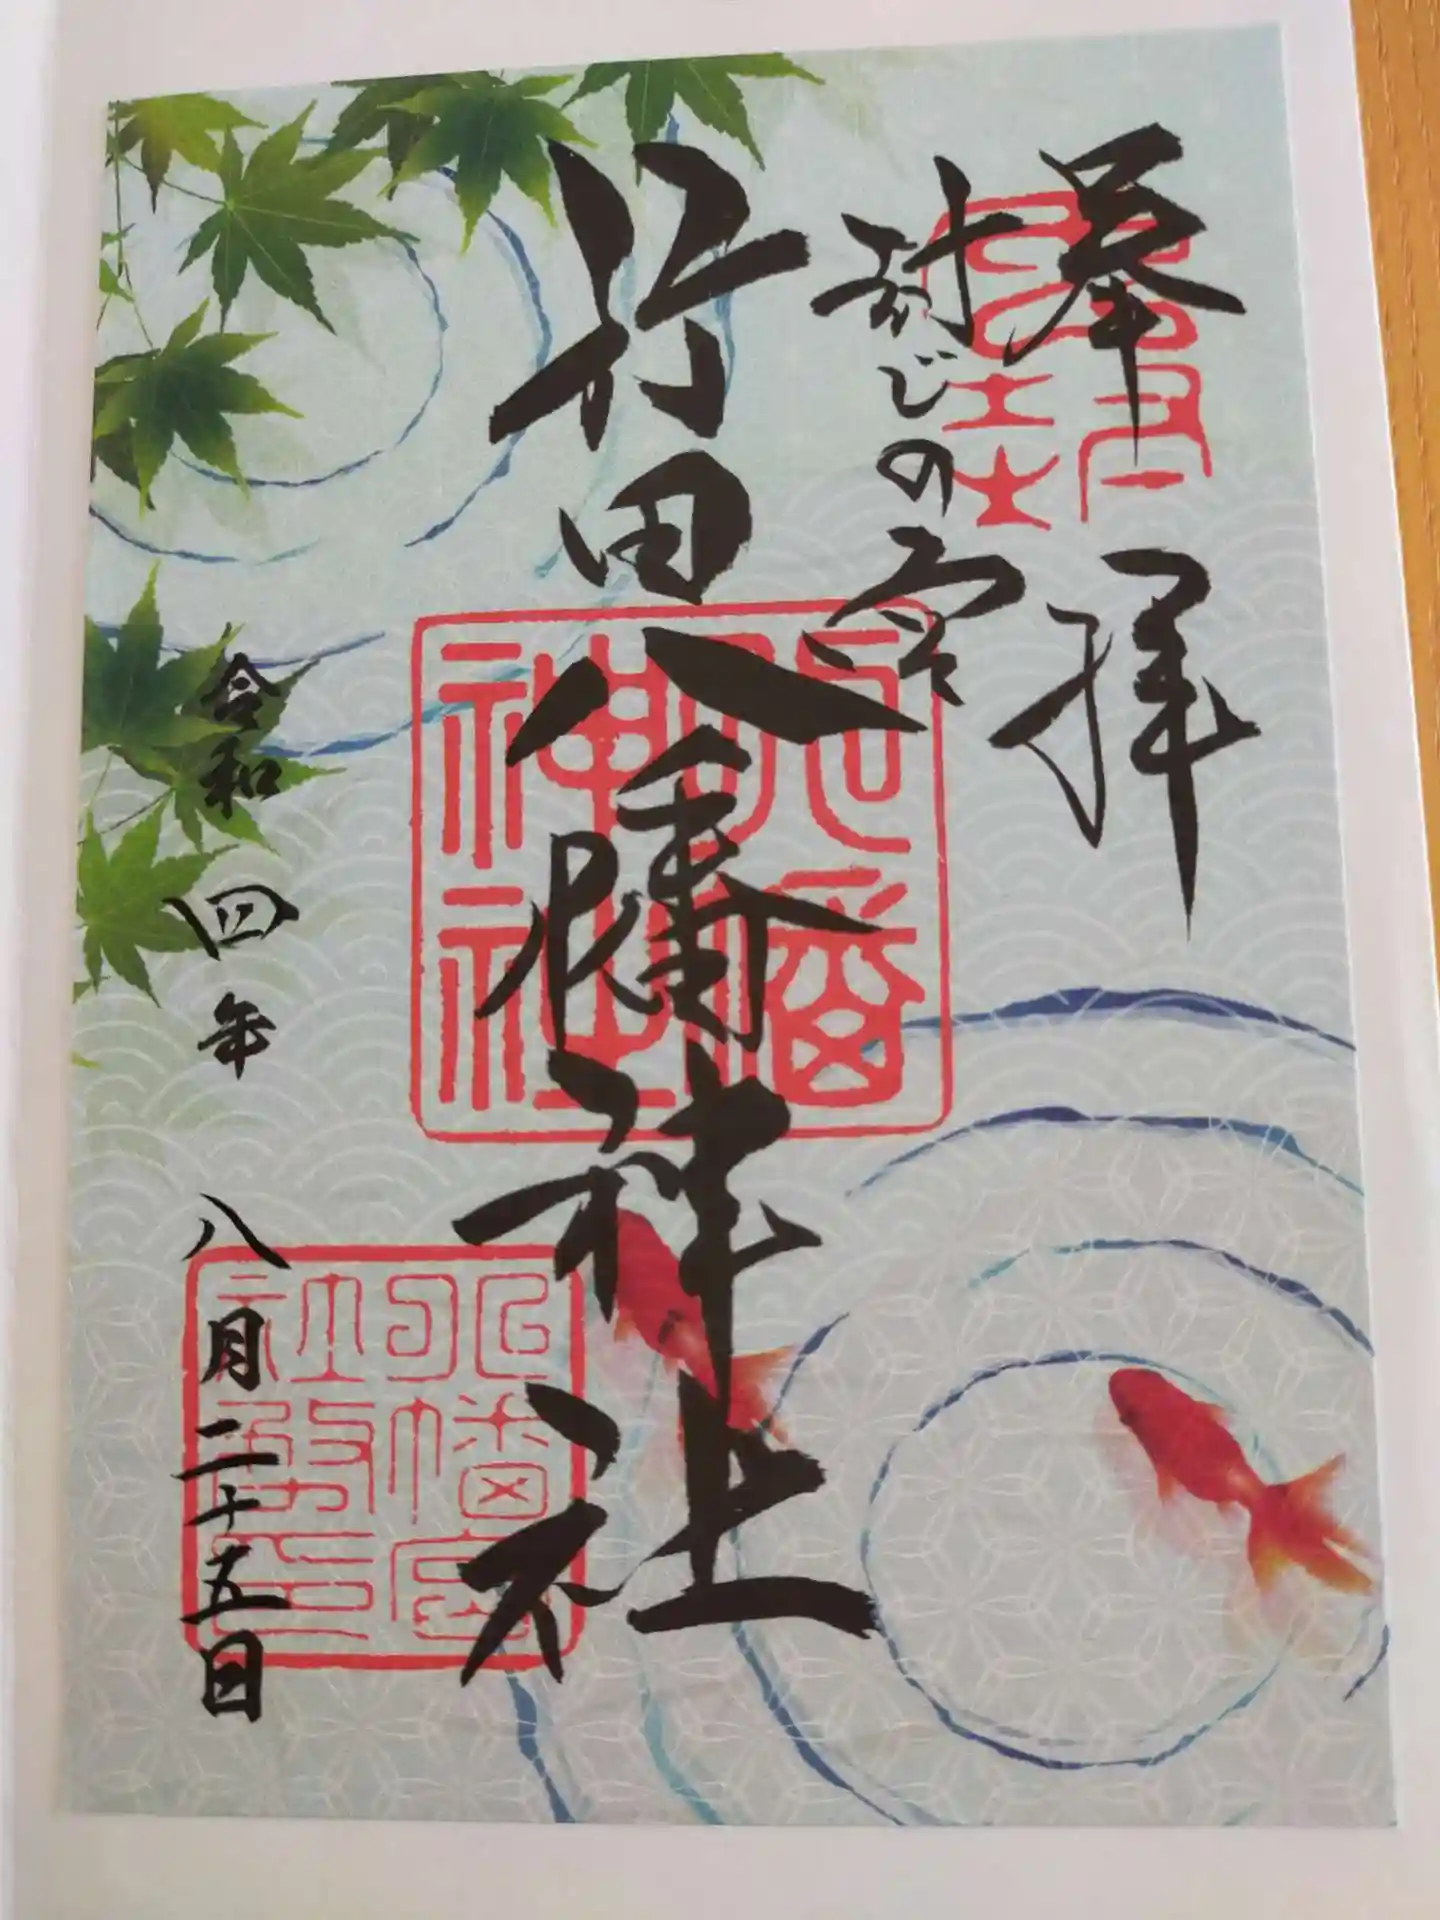 奉拝
封じの宮
行田八幡神社
八幡神社
令和四年八月二十五日